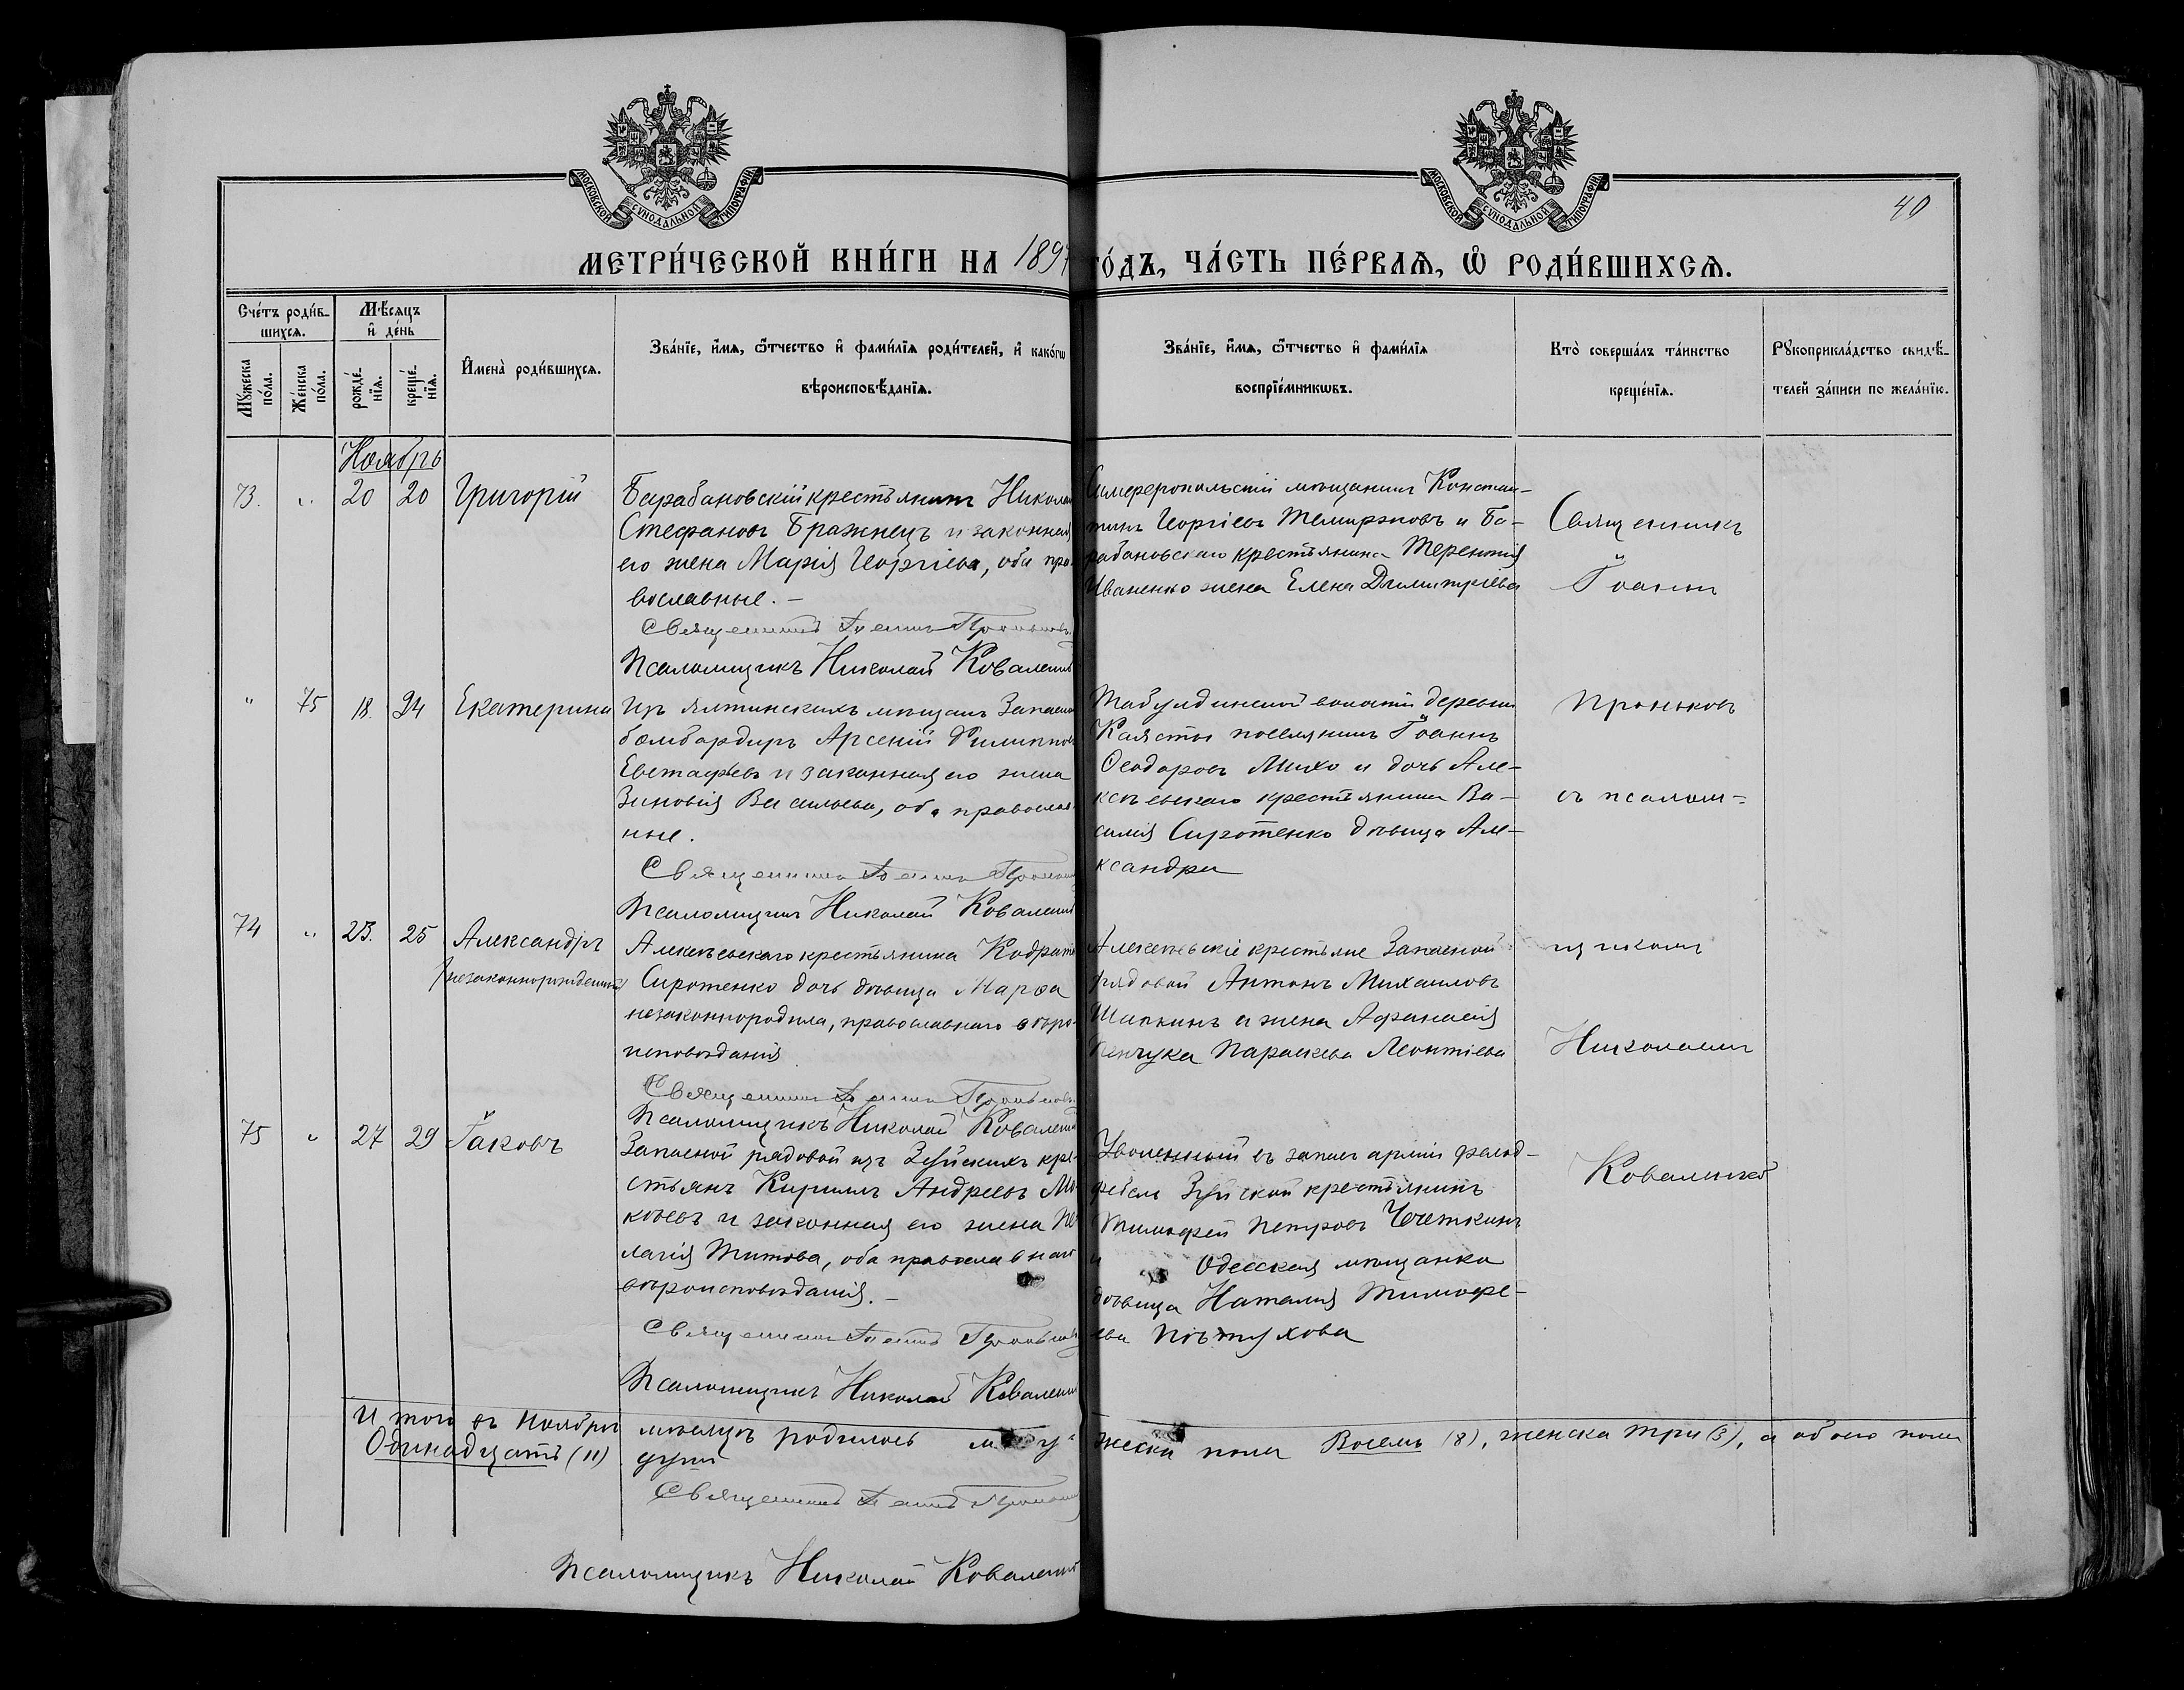 МОСКОВСКОЙ СУНОДАЛЬНОЙ ТИПОГРАФІИ
МОСКОВСКОЙ СУНОДАЛЬНОЙ ТИПОГРАФІИ
40
МЕТРИ́ЧЕСКОЙ КНИ́ГИ НА 1897
ГО́ДЪ, ЧА́СТЬ ПЕ́РВАѦ, Ѡ҆ РОДИ́ВШИХСѦ.
Сче́тъ роди́в-
шихсѧ.
Мѣ́сѧцъ
и҆ де́нь
Мꙋ́жеска
по́ла.
Же́нска
по́ла.
рожде́-
нїѧ.
креще́-
нїѧ.
И҆мена̀ роди́вшихсѧ.
Зва́нїе, и҆́мѧ, ѻ҆́тчество и҆ фами́лїѧ роди́телей, и҆ како́гѡ
вѣроисповѣ́данїѧ.
Зва́нїе, и҆́мѧ, ѻ҆́тчество и҆ фами́лїѧ
воспрїе́мникѡвъ.
Кто̀ соверша́лъ та́инство
креще́нїѧ.
Рꙋкоприкла́дство свидѣ́-
телей за́писи по жела́нїю.
Ноябрь
73. " 20 20 Григорій
Барабановскій крестьянинъ Никола
Стефановъ Бражнецъ и законная
его жена Марія Георгіева, оба пра-
вославные. –
Священникъ Іоаннъ Проньковъ
Псаломщикъ Николай Коваленко
Симферопольскій мѣщанинъ Констан-
тинъ Георгіевъ Темирзовъ и Ба-
рабановскаго крестьянина Терентія
Иваненко жена Елена Димитріева
Священникъ
Іоаннъ
" 75 18. 24 Екатерина
Изъ ялтинскихъ мѣщанъ Запасный
бомбардиръ Арсеній Филипповъ
Евстафьевъ и законная его жена
Зиновія Васильева, оба православ-
ные.
Священникъ Іоаннъ Проньковъ
Псаломщикъ Николай Коваленко
Табулдинской волости деревни
поселянинъ Іоаннъ
Ѳеодоровъ Михо и дочь Але-
ксѣевскаго крестьянина Ва-
силія Сиротенко дѣвица Але-
ксандра
Проньковъ
съ псалом-
74 " 23. 25 Александръ
(незаконнорожденный)
Алексѣевскаго крестьянина Кодрата
Сиротенко дочь дѣвица Марѳа
незаконнородила, православнаго вѣро-
исповѣданія
Священникъ Іоаннъ Проньковъ
Псаломщикъ Николай Коваленко
Алексѣевскіе крестьяне Запасной
рядовой Антонъ Михаиловъ
Шапкинъ и жена Афанасія
Пинчука Параскева Леонтіева
щикомъ
Николаемъ
75 " 27 29 Іаковъ
Запасной рядовой изъ Зуйскихъ кре-
стьянъ Кириллъ Андреевъ Мо-
кѣевъ и законная его жена Пе-
лагія Титова, оба православнаго
вѣроисповѣданія. –
Священникъ Іоаннъ Проньковъ
Псаломщикъ Николай Коваленко
Уволенный въ запасъ арміи фельд-
фебель Зуйской крестьянинъ
Тимофей Петровъ Чёткинъ
и Одесская мѣщанка
дѣвица Наталія Тимофе-
ева Пѣтухова
Коваленко
Итого въ Ноябрѣ мѣсяцѣ родилось мужеска пола Восемь (8), женска три (3), а обоего пола
Одинадцать (11) душъ
Священникъ Іоаннъ Проньковъ
Псаломщикъ Николай Коваленко